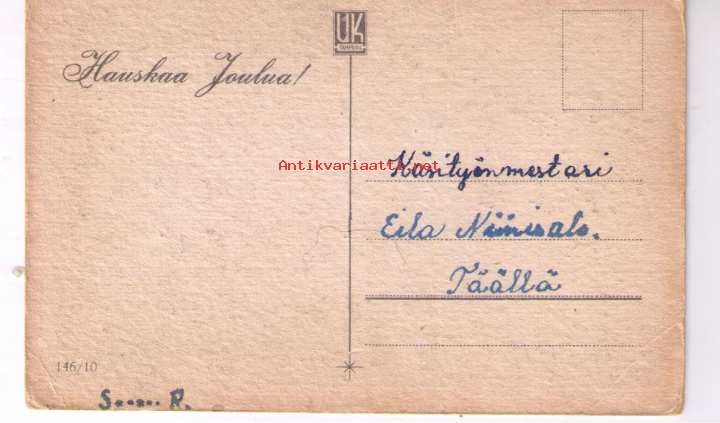 UK
TAMPERE
Hauskaa Joulua!
Antikvariaatti.net
Käsityönmestari
Eila Niinisalo.
Täällä
146/10
S..... R.